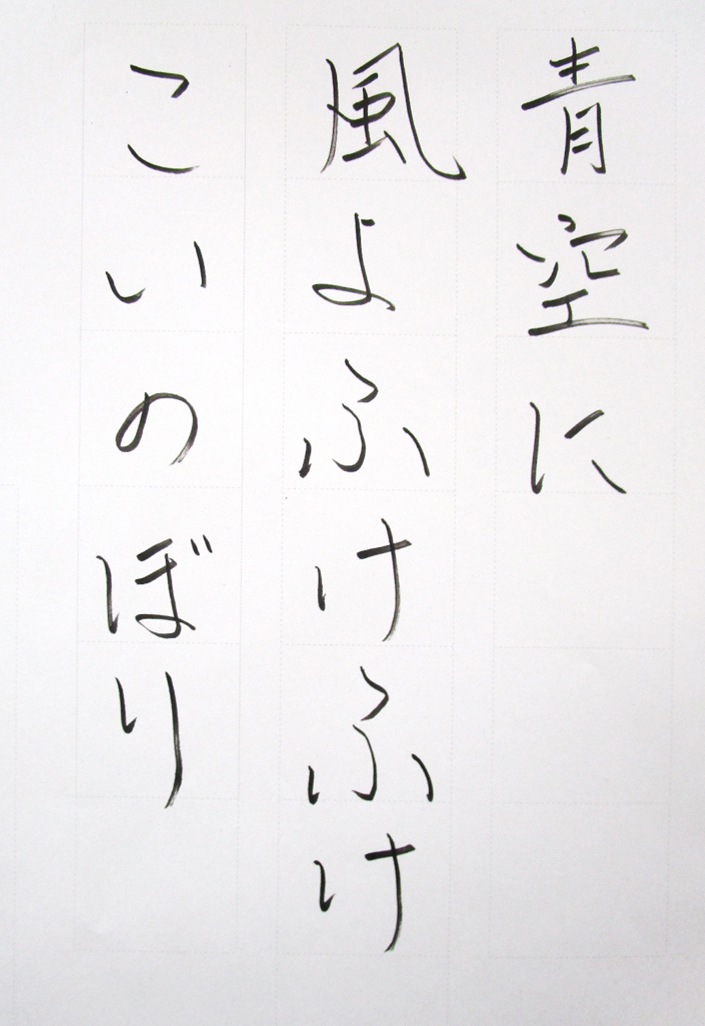 青空に
風よふけふけ
こいのぼり